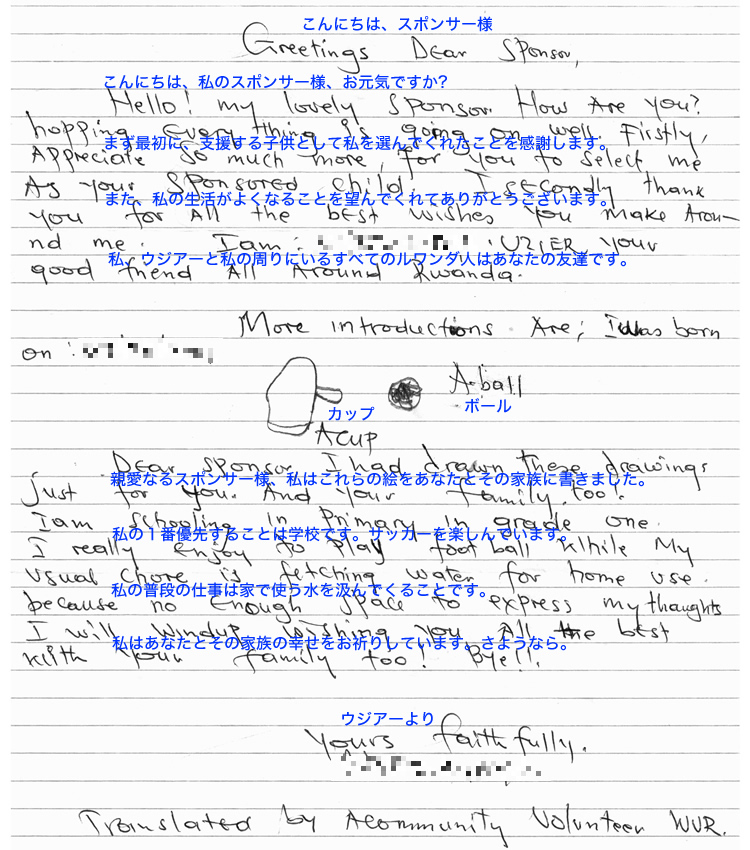 こんにちは、スポンサー様
Greetings Dear Sponsor,
こんにちは、私のスポンサー様、お元気ですか?
Hello! my lovely Sponsor. How Are you?
hopping Every thing is going on well. Firstly,
まず最初に、支援する子供として私を選んでくれたことを感謝します。
Appreciate so much more, for you to select me
As your Sponsored child. I secondly thank
また、私の生活がよくなることを望んでくれてありがとうございます。
you for All the best wishes you make Arou-
nd me. I am: UZIER, your
私、ウジアーと私の周りにいるすべてのルワンダ人はあなたの友達です。
good friend All Around Rwanda.
More introductions Are; I was born
on:
A-ball
カップ
ボール
A CUP
Dear Sponsor I had drawn these drawings
親愛なるスポンサー様、私はこれらの絵をあなたとその家族に書きました。
just for you. And your family. too!
I am schooling in Primary in grade one.
私の1番優先することは学校です。サッカーを楽しんでいます。
I really enjoy to play foot ball While My
usual chore is fetching water for home use.
私の普段の仕事は家で使う水を汲んでくることです。
because no enough space to express my thoughts
I will windup wishing you All the best
私はあなたとその家族の幸せをお祈りしています。さようなら。
With your family too! Bye!!.
ウジアーより
yours faithfully.
Translated by Acommunity Volunteer WVR.